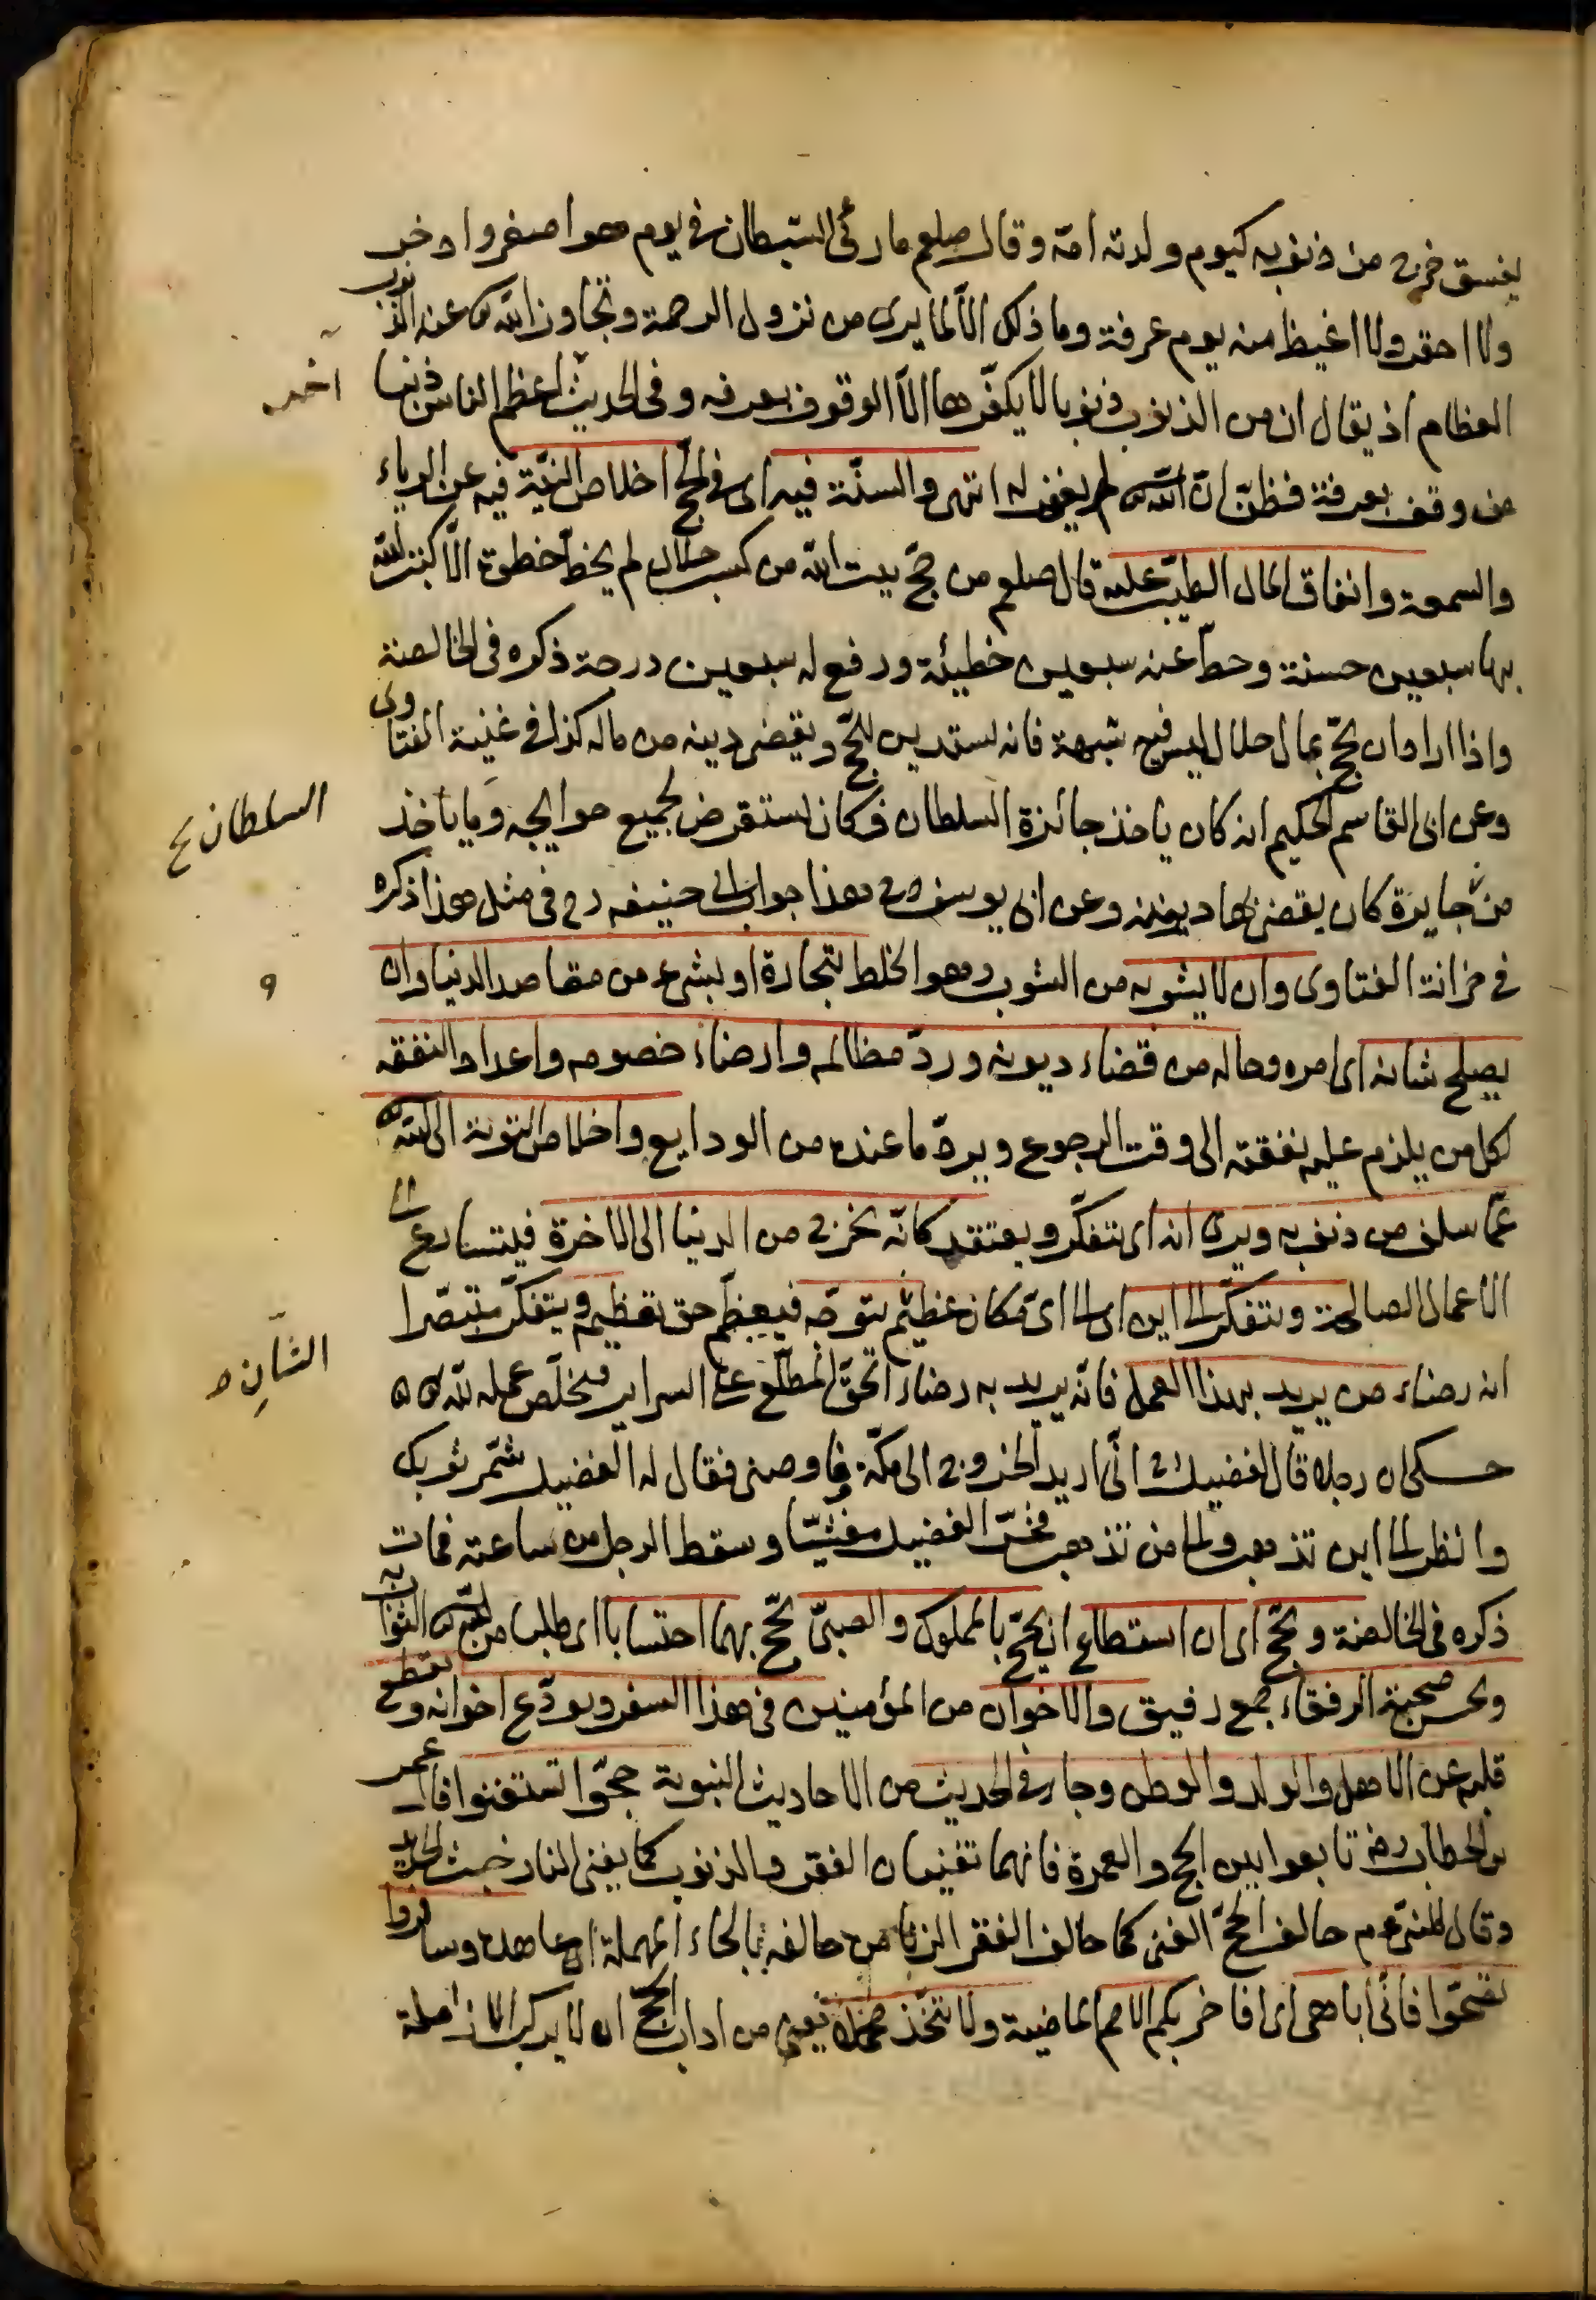 يفسق خرج من ذنوبه كيوم ولدته امه وقال صلعم ما رئى الشيطان في يوم هو اصغر وادخر
ولا احقر ولا اغيظ منه يوم عرفة وما ذلك الا لما يرى من نزول الرحمة وتجاوز الله عن الذنوب
العظام اذ يقال ان من الذنوب ذنوبا لا يكفّرها الّا الوقوف بعرفه وفى الحديث اعظم الناس ذنبا
آخر
من وقف بعرفة فظنّ انّ الله لم يغفر له انتهى والسنّة فيه اى فى الحج اخلاص النيّة فيه عن الرياء
والسمعة وانفاق المال الطيّب عليه قال صلعم من حجّ بيت الله من كسب حلال لم يخط خطوة الّا كتب الله
بها سبعين حسنة وحطّ عنه سبعين خطيئة ورفع له سبعين درجة ذكره فى الخالصة
واذا اراد ان يحجّ بمال حلال ليس فيه شبهة فانه يستدين للحجّ ويقضى دينه من ماله كذا فى غنية الفتاوى
وعن ابى القاسم الحكيم انه كان ياخذ جائزة السلطان فكان يستقرض لجميع حوايجه وما ياخذ
السلطان
من جايزة كان يقضى بها ديونه وعن ابى يوسف هذا جواب ابى حنيفه رح فى مثل هذا ذكره
فى خزانة الفتاوى وان لا يشوبه من الشوب وهو الخلط بتجارة او بشئ من مقاصد الدنيا وان
و
يصلح شانه اى امره وحاله من قضاء ديونه وردّ مظالم وارضاء خصومه واعداد النفقه
لكل من يلزم عليه نفقته الى وقت الرجوع ويردّ ما عنده من الودايع واخلاص التوبة الى الله
عمّا سلف من ذنوبه ويرى انه اى يتفكّر ويعتقد كانّه يخرج من الدنيا الى الاخرة فيتسارع الى
الاعمال الصالحة ويتفكّر الى اين اى الى اىّ مكان عظيم يتوجّه فيعظّم حق تعظيمه ويتفكّر متبصّرا
انه رضاء من يريد بهذا العمل فانّه يريد به رضاء الحقّ المطّلع على السراير فيخلّص عمله لله
حكى ان رجلا قال لفضيل انّى اريد الخروج الى مكّة فاوصنى فقال له الفضيل شمّر ثوبك
وانظر الى اين تذهب والى من تذهب فخرّ الفضيل مغشيّا وسقط الرجل من ساعته فمات
ذكره فى الخالصة ويحجّ اى ان استطاع ان يحجّ بالمملوك والصبىّ يحجّ بهما احتسابا اى طلبا من الله الثواب
ويحسن صحبة الرفقاء جمع رفيق والاخوان من المؤمنين فى هذا السفر ويودّع اخوانه ويقطع
قلبه عن الاهل والولد والوطن وجاء فى الحديث من الاحاديث النبوية حجّوا تستغنوا قال عمر
بن الخطاب رضه تابعوا بين الحج والعمرة فانهما تنفيان الفقر والذنوب كما ينفى النار خبث الحديد
وقال النبىّ عم حالف الحجّ الغنى كما حالف الفقر الزنا من حالفه بالحاء المهملة اى عاهده وسافروا
تصحّوا فانّى اباهى اى افاخر بكم الامم الماضية ولا تتّخذ يعنى من اداب الحجّ ان لا يركب الا زاملة